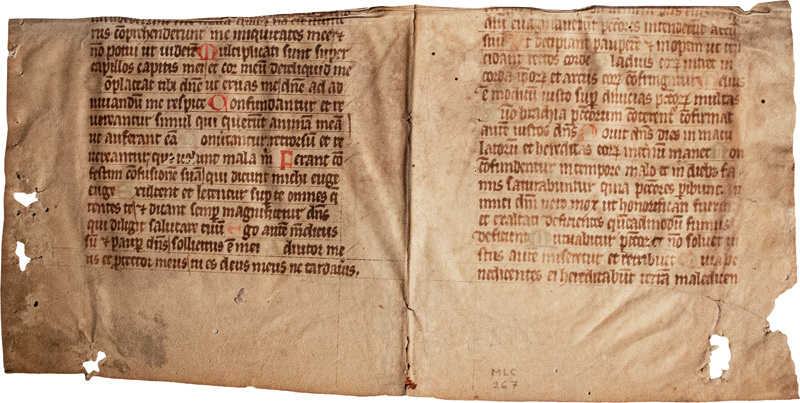 rus cōprehenderunt me iniquitates mee ⁊
nō potui ut viderē Multiplicati sunt super
capillos capitis mei et cor meū dereliquid me
oplaceat tibi dn̄e ut eruas me dn̄e ad ad
iuuandū me respice Confundantur et re
uereantur simul qui querūt animā meā
ut auferant eā onuertantur retrorsū et re
uereantur qui uolunt mala m̄ Ferant cō
festim confusione suā qui dicunt michi euge
euge Exultent et letentur sup te omnes q
rentes te et dicant semp magnificetur dn̄s
qui diligit salutare tuū Ego autē mēdicus
sū et paup dn̄s sollicitus ē mei diutor me
us et ptector meus tu es deus meus ne tardaūis
euaginauerūt pctores intenderūt arcū
suū Ut decipiant paupere et inopem ut tru
cident rectos corde ladius eorū intret in
corda ipsorū et arcus eorū cofringatur Melius
ē modicū iusto sup diuicias pctorū multas
uō brachia pctorum coterent cofirmat
autē iustos dn̄s Nouit dn̄s dies in macu
latorū et hereditas eorū in etnū manet on
cofundentur in tempore malo et in dieb; fa
mis saturabuntur quia pctores pibunt In
imici dn̄i uero mox ut honorificati fuerīt
et exaltati deficientes quēadmodū fumus
deficient Mutuabitur pctor et nō soluet iu
stus autē miseretur et retribuet Quia be
nedicentes ei hereditabūt terrā maledicen
MLC
267